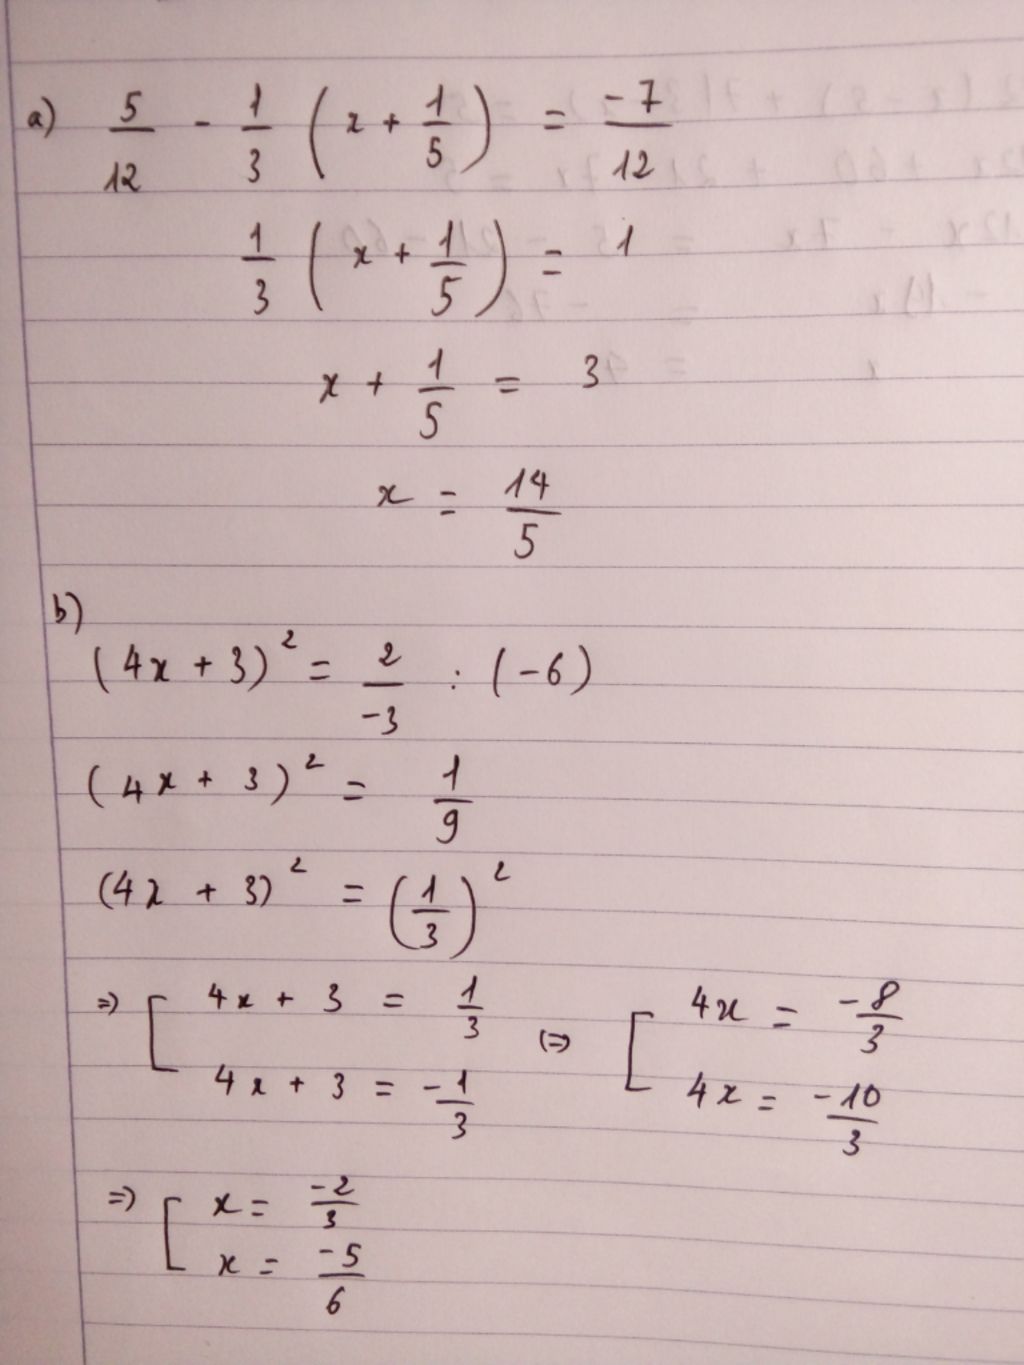 a) 5/12 - 1/3 (x + 1/5) = -7/12
1/3 (x + 1/5) = 1
x + 1/5 = 3
x = 14/5
b)
(4x + 3)² = 2/-3 : (-6)
(4x + 3)² = 1/9
(4x + 3)² = (1/3)²
=> [ 4x + 3 = 1/3 (=) [ 4x = -8/3
4x + 3 = -1/3 4x = -10/3
=> [ x = -2/3
x = -5/6